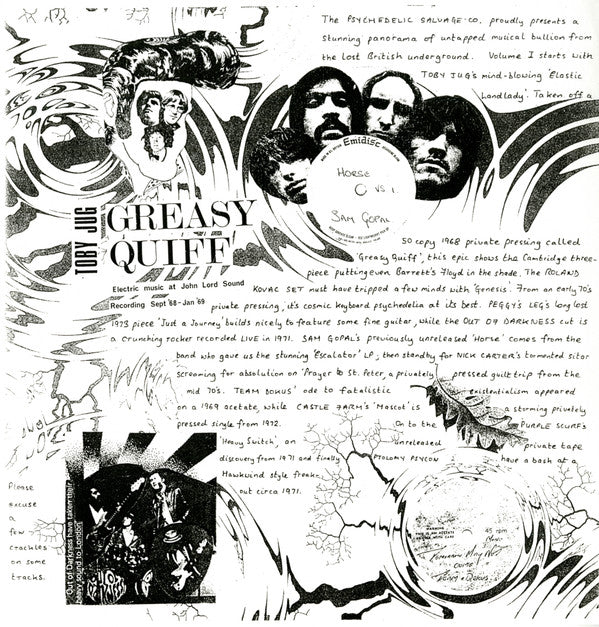 The PSYCHEDELIC SALVAGE CO. proudly presents a
stunning panorama of untapped musical bullion from
the lost British underground. Volume I starts with
TOBY JUG's mind-blowing 'Elastic
Landlady'. Taken off a
Emidisc
HORSE
VS 1
SAM GOPAL
TOBY JUG
GREASY
QUIFF
Electric music at John Lord Sound
Recording Sept '68-Jan '69
50 copy 1968 private pressing called
'Greasy Quiff', this epic shows the Cambridge three-
piece putting even Barrett's Floyd in the shade. The ROLAND
KOVAC SET must have tripped a few minds with 'Genesis'. From an early 70's
private pressing, it's cosmic keyboard psychedelia at its best. PEGGY'S LEG's long lost
1973 piece 'Just a Journey' builds nicely to feature some fine guitar, while the OUT OF DARKNESS cut is
a crunching rocker recorded LIVE in 1971. SAM GOPAL's previously unreleased 'Horse' comes from the
band who gave us the stunning 'Escalator' LP, then standby for NICK CARTER's tormented sitar
screaming for absolution on 'Prayer to St. Peter, a privately pressed guilt trip from the
mid 70's. TEAM DOKUS' ode to fatalistic existentialism appeared
on a 1969 acetate, while CASTLE FARM's 'Mascot' is a storming privately
pressed single from 1972. On to the PURPLE SCURF's
'Heavy Switch', an unreleased private tape
discovery from 1971 and finally PTOLOMY PSYCON have a bash at a
Hawkwind style freak-
out circa 1971.
Out of Darkness have taken their
heavy sound to London
Please
excuse
a
few
crackles
on some
tracks.
45 rpm